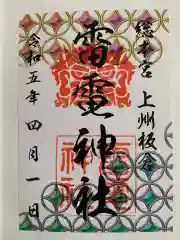 総本宮 上州板倉
雷電神社
令和五年 四月一日